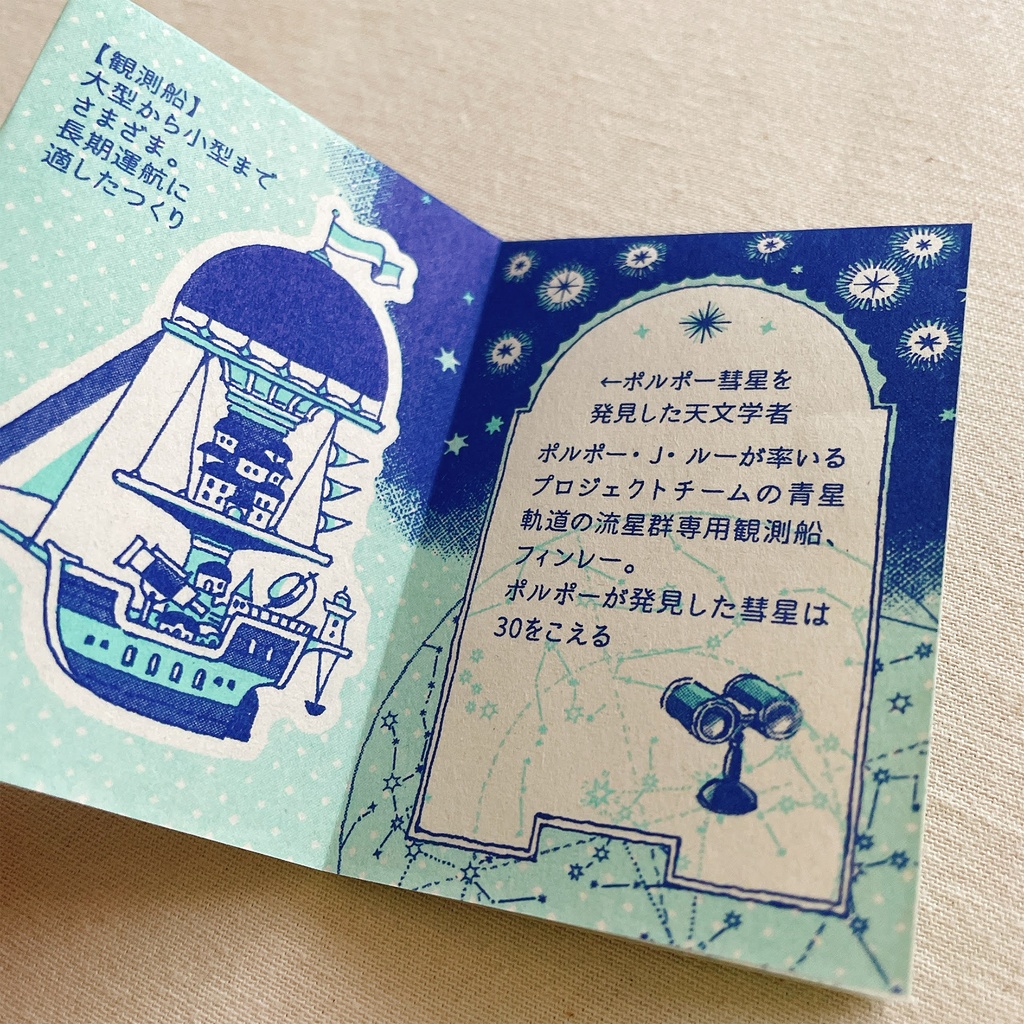 【観測船】
大型から小型まで
さまざま。
長期運航に
適したつくり
←ポルポー彗星を
発見した天文学者
ポルポー・J・ルーが率いる
プロジェクトチームの青星
軌道の流星群専用観測船、
フィンレー。
ポルポーが発見した彗星は
30をこえる